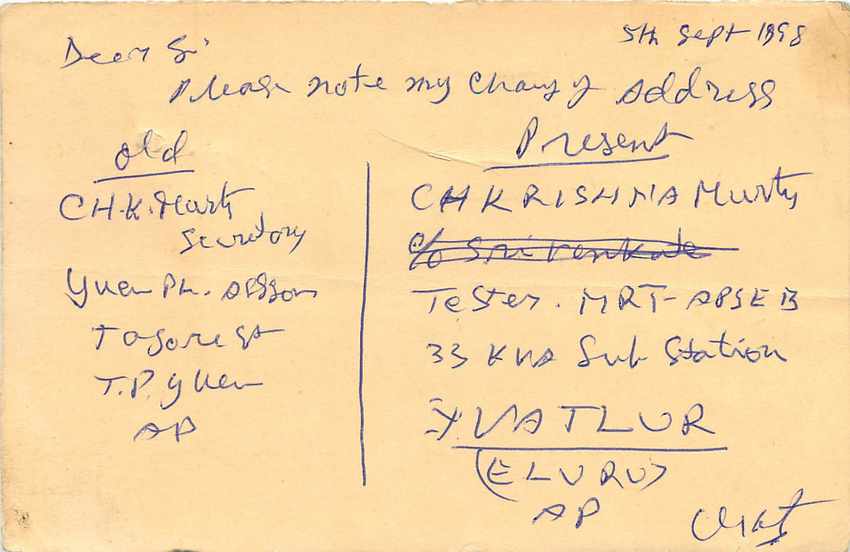 5th Sept 1998
Dear Sir
Please note my Change of address
Old
CH.K. Murty
Secretary
Yuem Ph. Assson
Tagore st
T.P. Yuem
AP
Present
CH KRISHNA Murty
c/o Sri Venkate
Tester. MRT-APSEB
33 KVA Sub Station
VATLUR
(ELURU)
AP